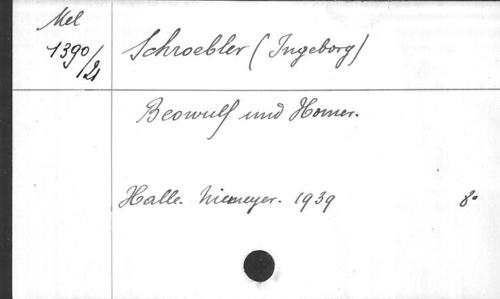 Mel
1390/21
Schroebler (Ingeborg)
Beowulf und Homer.
Halle. Niemeyer. 1939 8°